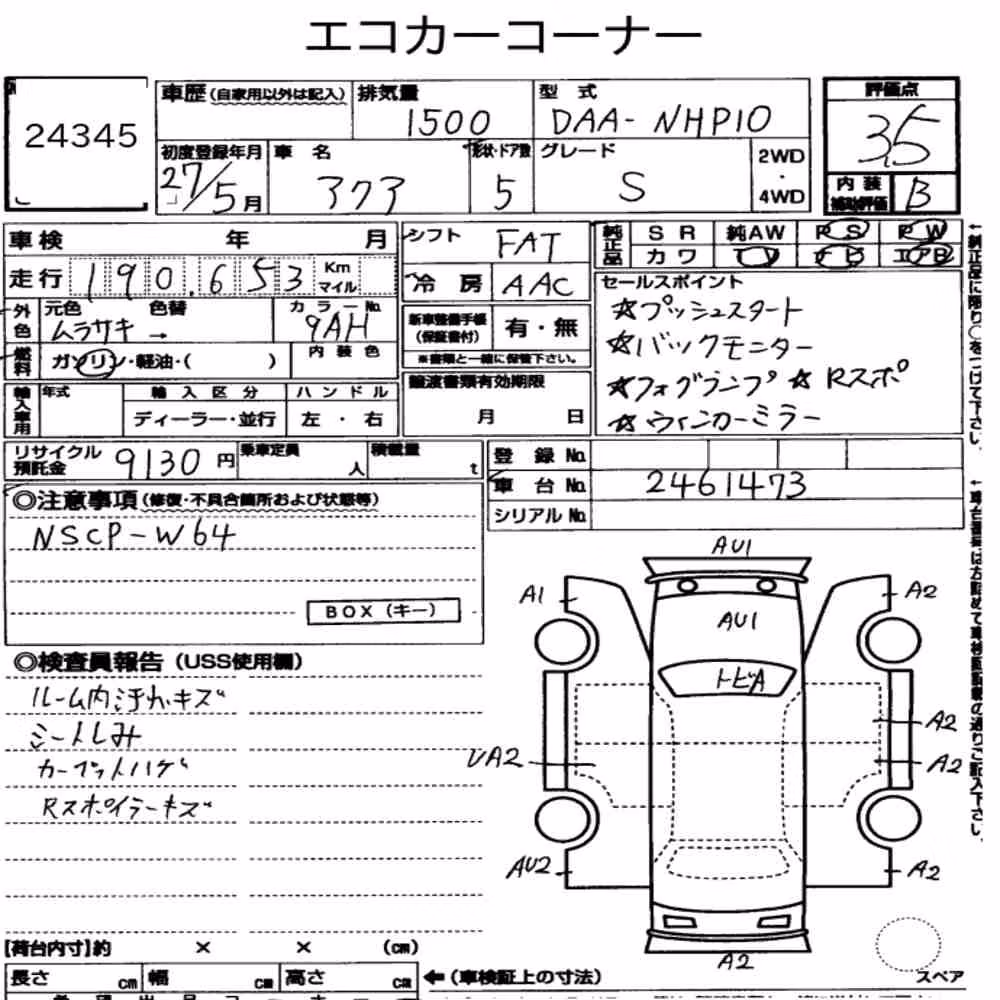 エコカーコーナー
24345
車歴 (自家用以外は記入) 排気量 1500 型式 DAA-NHP10
評価点 3.5
初度登録年月 27/5月 車名 アクア 形状・ドア数 5 グレード S 2WD・4WD
内装補助評価 B
車検 年 月
シフト FAT
純正品 SR 純AW PS PW
カワ TV ナビ エアB
走行 190,653 Km マイル
冷房 AAC
セールスポイント
☆プッシュスタート
☆バックモニター
☆フォグランプ ☆Rスポ
☆ウィンカーミラー
外色 元色 ムラサキ → 色替 カラーNo 9AH
新車整備手帳 (保証書付) 有・無
※書類と一緒に保管下さい。
燃料 ガソリン・軽油・( ) 内装色
輸入車用 年式 輸入区分 ハンドル
ディーラー・並行 左・右
譲渡書類有効期限
月 日
リサイクル預託金 9130円 乗車定員 人 積載量 t
登録No
車台No 2461473
シリアルNo
◎注意事項 (修復・不具合箇所および状態等)
NSCP-W64
BOX (キー)
◎検査員報告 (USS使用欄)
ルーム内汚れ、キズ
シートしみ
カーペットハゲ
Rスポイラーキズ
AU1
A1
A2
AU1
トビA
A2
UA2
A2
AU2
A2
A2
スペア
【荷台内寸】約 × × (cm)
長さ cm 幅 cm 高さ cm ← (車検証上の寸法)
←純正品に限り○をつけて下さい。